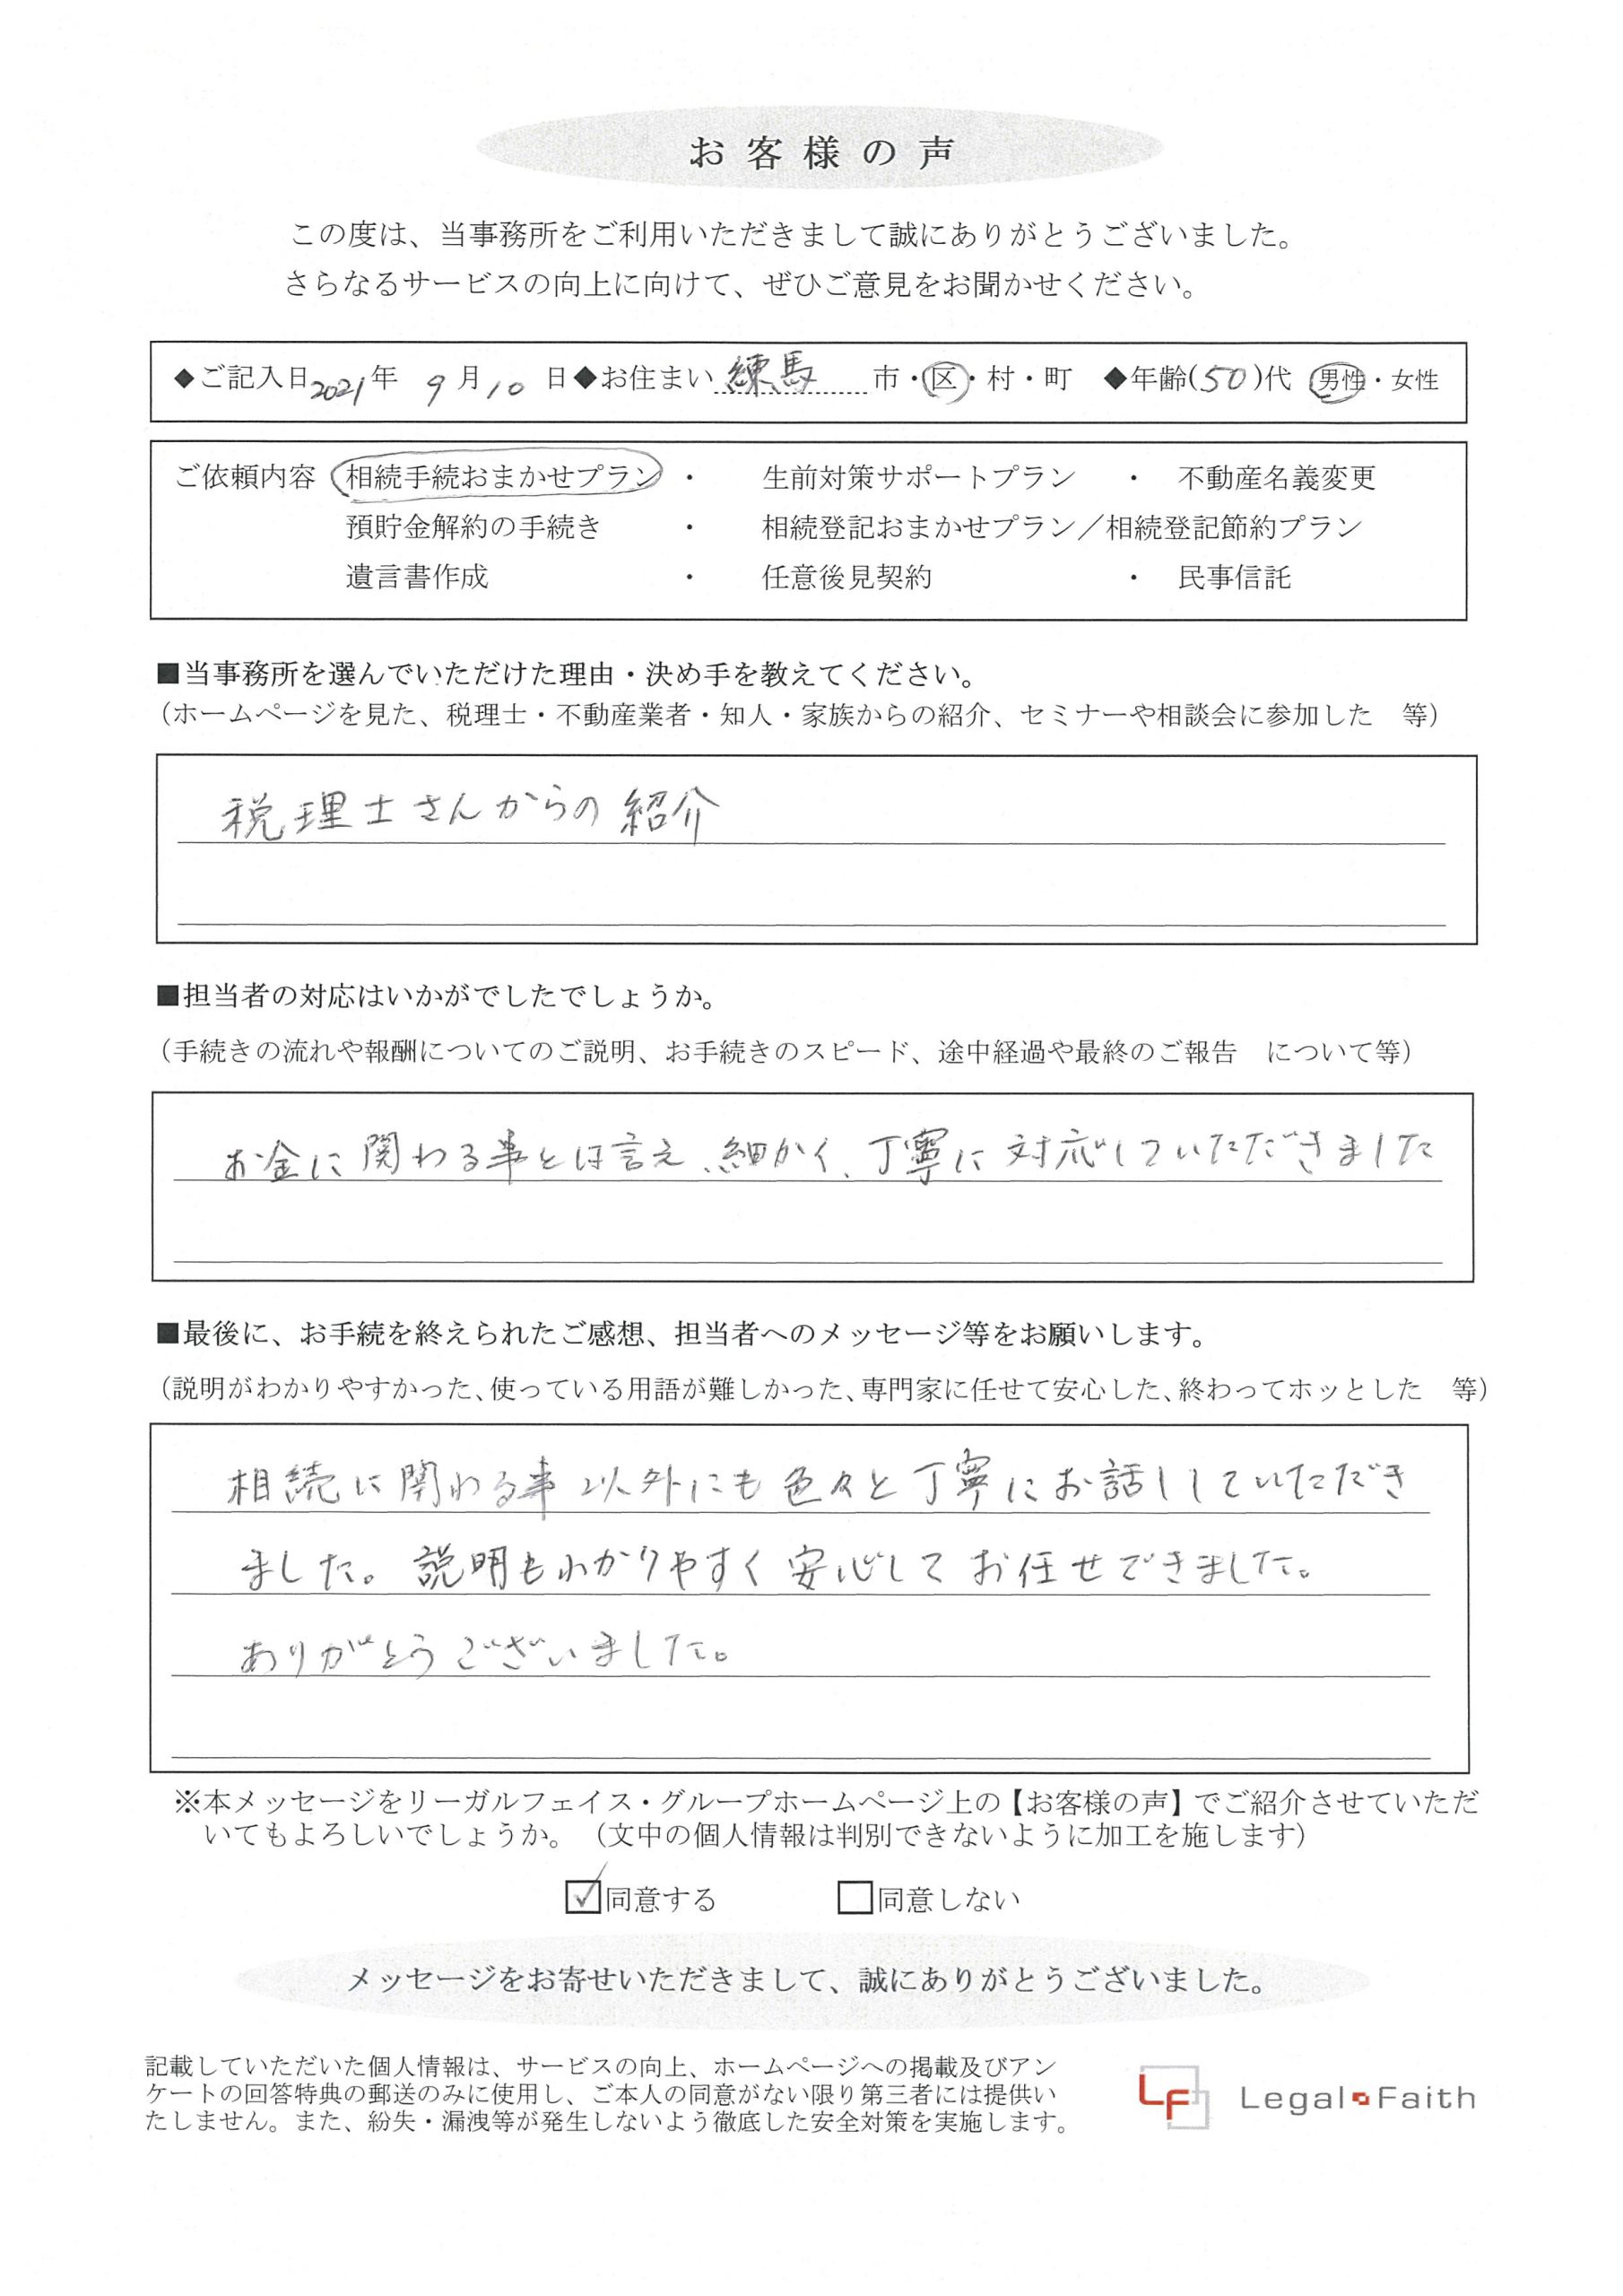 お客様の声
この度は、当事務所をご利用いただきまして誠にありがとうございました。
さらなるサービスの向上に向けて、ぜひご意見をお聞かせください。
◆ご記入日2021年 9月10日◆お住まい 練馬 市・区・村・町 ◆年齢(50)代 男性・女性
ご依頼内容 相続手続おまかせプラン ・ 生前対策サポートプラン ・ 不動産名義変更
預貯金解約の手続き ・ 相続登記おまかせプラン／相続登記節約プラン
遺言書作成 ・ 任意後見契約 ・ 民事信託
■当事務所を選んでいただけた理由・決め手を教えてください。
（ホームページを見た、税理士・不動産業者・知人・家族からの紹介、セミナーや相談会に参加した 等）
税理士さんからの紹介
■担当者の対応はいかがでしたでしょうか。
（手続きの流れや報酬についてのご説明、お手続きのスピード、途中経過や最終のご報告 について等）
お金に関わる事とは言え、細かく、丁寧に対応していただきました
■最後に、お手続を終えられたご感想、担当者へのメッセージ等をお願いします。
（説明がわかりやすかった、使っている用語が難しかった、専門家に任せて安心した、終わってホッとした 等）
相続に関わる事以外にも色々と丁寧にお話ししていただき
ました。説明もわかりやすく安心してお任せできました。
ありがとうございました。
※本メッセージをリーガルフェイス・グループホームページ上の【お客様の声】でご紹介させていただ
いてもよろしいでしょうか。（文中の個人情報は判別できないように加工を施します）
☑同意する □同意しない
メッセージをお寄せいただきまして、誠にありがとうございました。
記載していただいた個人情報は、サービスの向上、ホームページへの掲載及びアン
ケートの回答特典の郵送のみに使用し、ご本人の同意がない限り第三者には提供い
たしません。また、紛失・漏洩等が発生しないよう徹底した安全対策を実施します。
LF Legal Faith